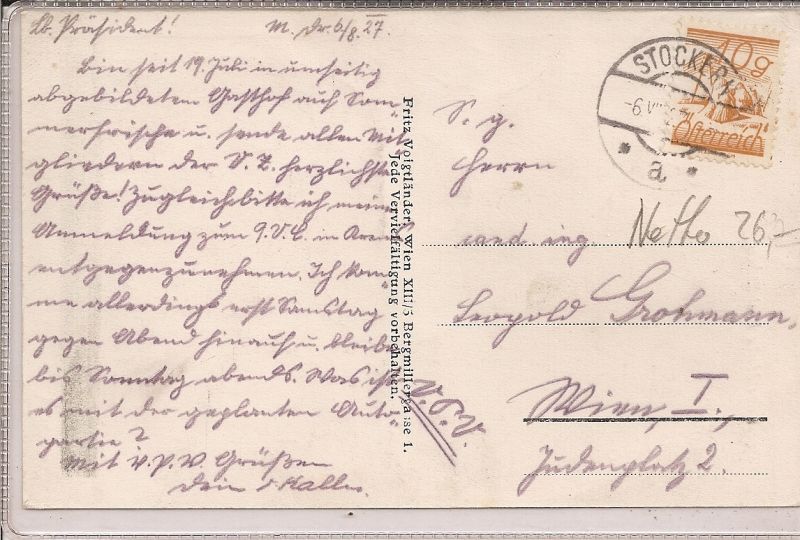 Lb. Präsident!
M. dr. 6/8. 27.
Bin seit 19. Juli in umseitig
abgebildetem Gasthof auf Som=
merfrische u. sende allen Mit
gliedern der S. L. herzlichste
Grüße! Zugleich bitte ich meine
Anmeldung zum 9. V. C. in Krems
entgegenzunehmen. Ich kom=
me allerdings erst Samstag
gegen Abend hinauf u. bleibe
bis Sonntag abends. Was ist
es mit der geplanten Auto=
partie?
Mit v. p. V. Grüßen
Dein
Fritz Voigtländer, Wien XIII/5 Bergmillergasse 1.
Jede Vervielfältigung vorbehalten.
STOCKER
-6.V
a
10g
Österreich
S. g.
Herrn
cand. ing.
Netto 26,-
Leopold Grohmann,
Wien, I.,
Judenplatz 2.